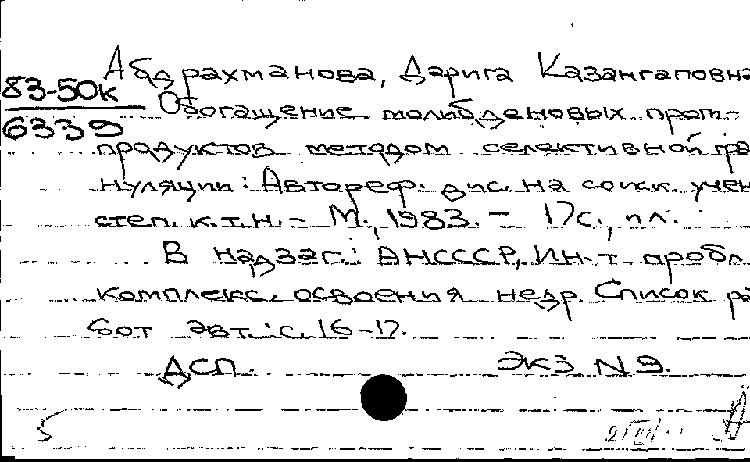 Абдрахманова, Дарига Казангаповна
83-50к
6339
Обогащение молибденовых пром-
продуктов методом селективной гра-
нуляции: Автореф. дис. на соиск. учен.
степ. к.т.н. - М., 1983. - 17с., ил.
В надзаг.: АНСССР, Ин-т пробл.
комплекс. освоения недр. Список ра-
бот авт.: с. 16-17.
ДСП. ЭКЗ N 9.
5